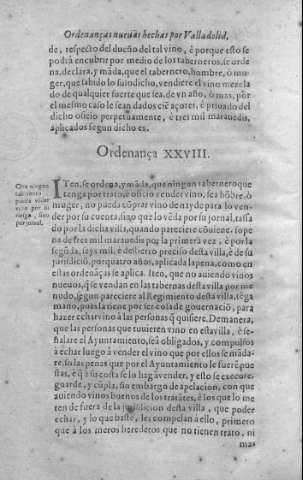 Ordenanças nueuas hechas por Valladolid,
de, respecto del dueño del tal vino, é porque esto se
podrá encubrir por medio de los taberneros, se orde
na, declara, y mãda, que el tabernero, hombre, ó mu-
ger, que sabido lo susodicho, vendiere el vino, sea la
de qualquier suerte que sea, de vn año, ó mas, por
el mesmo caso le sean dados ciẽ açotes, é priuado del
dicho oficio perpetuamente, é tres mil marauedis,
aplicados segun dicho es.
Ordenança XXVIII.
Que ningun
tabernero
pueda vẽder
vino por su
riesgo, sino
por jornal.
ITen, se ordena, y mãda, que ningun tabernero que
tenga por trato, é oficio vendir vino, sea hõbre, ó
muger, no pueda cõprar vino de nayde para lo ven-
der por su cuenta, sino que lo vẽda por su jornal, tassa
do por la dicha villa, quando pareciere cõuiene, so pe
na de tres mil marauedis por la primera vez, é por la
segũda, seys mil, é destierro preciso desta villa, é de su
jurisdiciõ, por quatro años, aplicada la pena, como en
estas ordenãças se aplica. Iten, que no auiendo vinos
nueuos, q̃ se vendan en las tabernas desta villa por me
nudo, segun pareciere al Regimiento desta villa, tẽga
mano, pues la tiene por ser cosa de gouernaciõ, para
hazer echar vino à las personas q̃ quisiere. De manera,
que las personas que tuuieren vino en esta villa, è se-
ñalare el Ayuntamiento, seã obligados, y compulsos
à echar luego à vender el vino que por ellos se mãda-
re, so las penas que por el Ayuntamiento le fuerẽ pue
stas, é q̃ à su costa se la hagã vender, y esto se execute,
guarde, y cũpla, sin embargo de apelacion, con que
auiendo vinos buenos de los tratãtes, è los que lo me
ten de fuera de la jurisdicion desta villa, que poder
echar, y lo que baste, les compelan à ello, primero
que à los meros herederos que no tienen trato, ni
mas